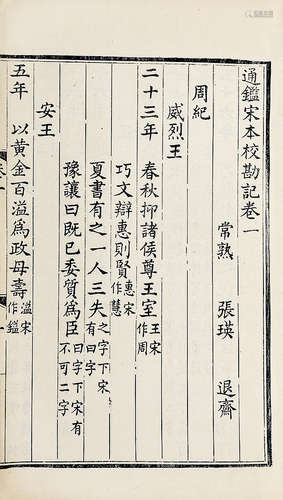 通鑑宋本校勘記卷一
常熟 張瑛 退齋
周紀
威烈王
二十三年 春秋抑諸侯尊王室 王宋作周
巧文辯惠則賢 惠宋作慧
夏書有之一人三失 之字下宋有曰字
豫讓曰既已委質爲臣 曰字下宋有不可二字
安王
五年 以黄金百溢爲政母壽 溢宋作鎰